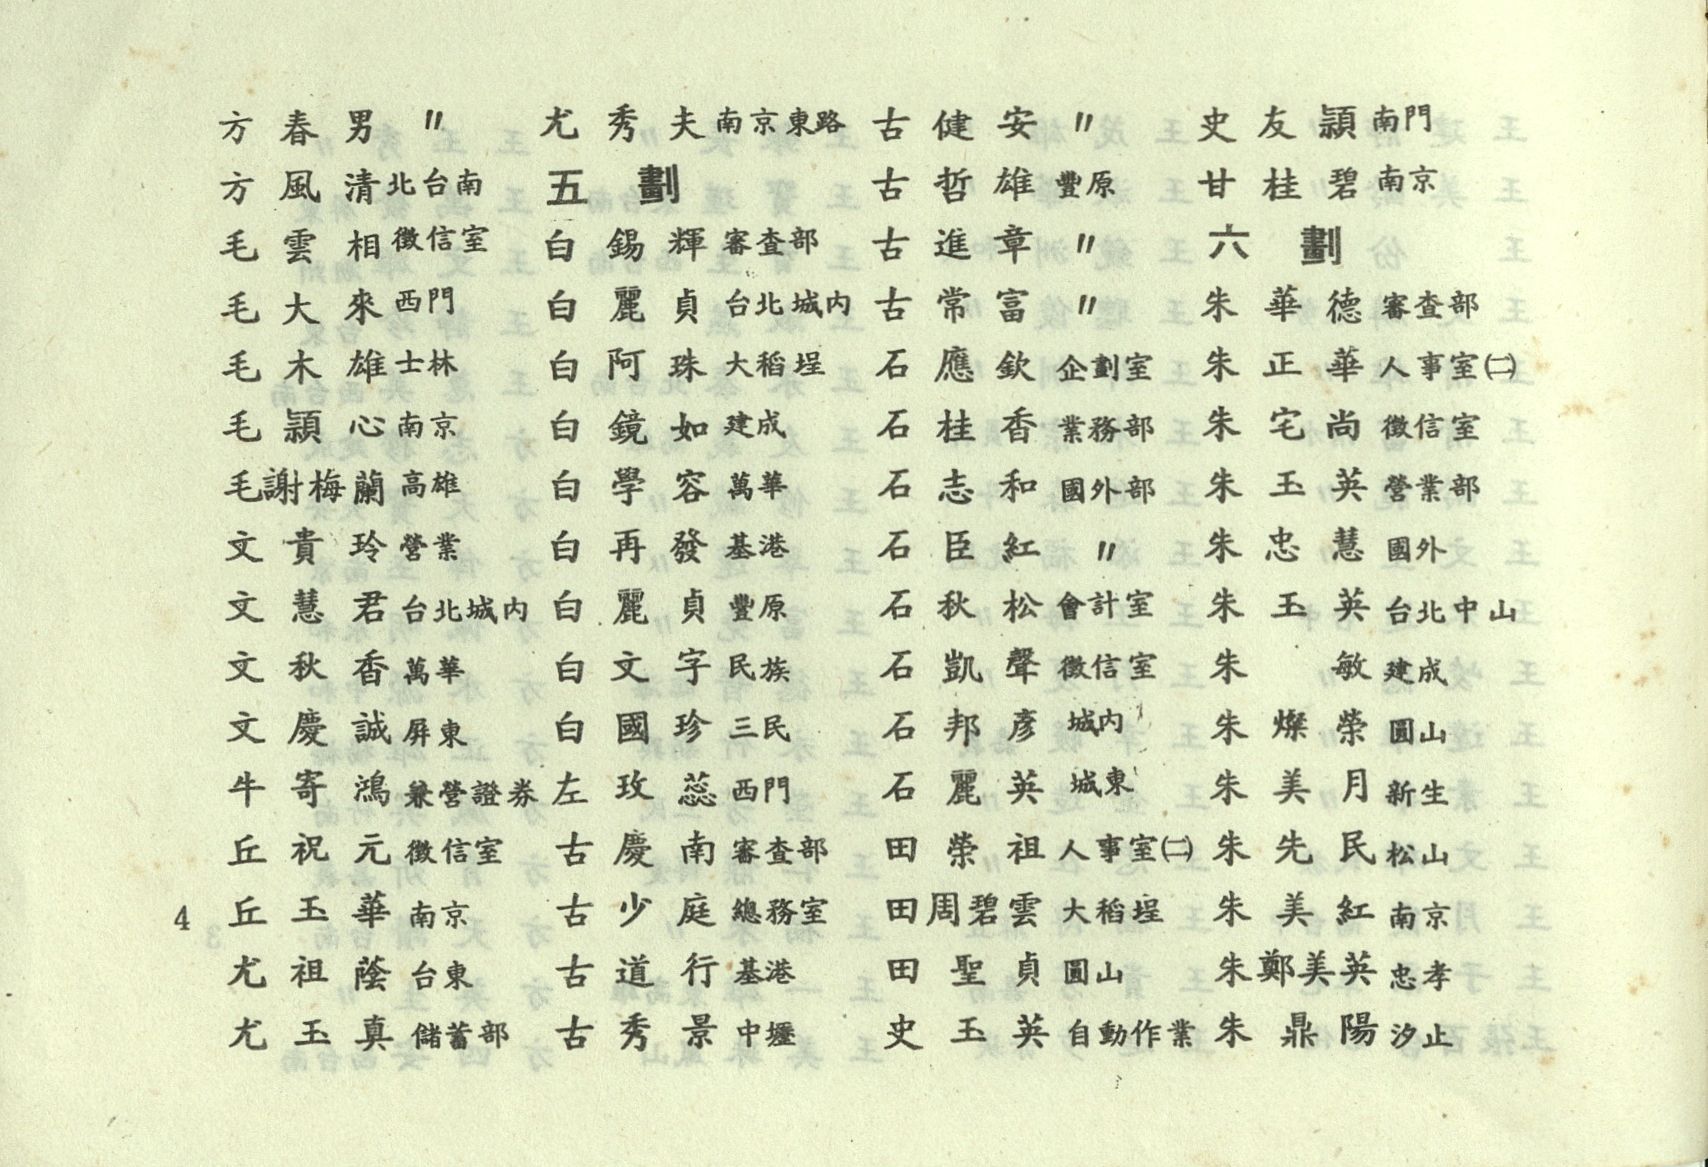 方春男 〃
方風清 北台南
毛雲相 徵信室
毛大來 西門
毛木雄 士林
毛穎心 南京
毛謝梅蘭 高雄
文貴玲 營業
文慧君 台北城内
文秋香 萬華
文慶誠 屏東
牛寄鴻 兼營證券
丘祝元 徵信室
丘玉華 南京
尤祖蔭 台東
尤玉真 儲蓄部
尤秀夫 南京東路
五劃
白錫輝 審查部
白麗貞 台北城内
白阿珠 大稻埕
白鏡如 建成
白學容 萬華
白再發 基港
白麗貞 豐原
白文字 民族
白國珍 三民
左玫蕊 西門
古慶南 審查部
古少庭 總務室
古道行 基港
古秀景 中壢
古健安 〃
古哲雄 豐原
古進章 〃
古常富 〃
石應欽 企劃室
石桂香 業務部
石志和 國外部
石臣紅 〃
石秋松 會計室
石凱聲 徵信室
石邦彥 城内
石麗英 城東
田榮祖 人事室㈡
田周碧雲 大稻埕
田聖貞 圓山
史玉英 自動作業
史友穎 南門
甘桂碧 南京
六劃
朱華德 審查部
朱正華 人事室㈡
朱宅尚 徵信室
朱玉英 營業部
朱忠慧 國外
朱玉英 台北中山
朱敏 建成
朱燦榮 圓山
朱美月 新生
朱先民 松山
朱美紅 南京
朱鄭美英 忠孝
朱鼎陽 汐止
4